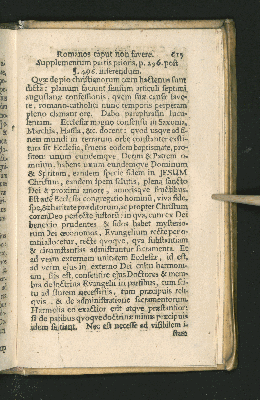 Romanos caput non favere. 615
Supplementum partis prioris, p. 296. post
§. 496. inserendum.
Quæ de pio christianorum cœtu hactenus sunt
dicta: planum faciunt sensum articuli septimi
augustanæ confessionis, quem suæ causæ fave-
re, romano-catholici nunc temporis perperam
pleno clamant ore. Dabo paraphrasin lucu-
lentam. Ecclesiæ magno consensu in Saxonia,
Marchia, Hassia, &c. docent: quod usque ad fi-
nem mundi in terrarum orbe constanter exsti-
tura sit Ecclesia, seu eodem baptismate, pro-
fitens unum eundemque Deum & Patrem o-
mnium, habens unum eundemque Dominum
& Spiritum, eandem spem in JESUM
Christum, eandem spem salutis, plena sancto
Dei & proximi amore, moribusque fructibus.
Est autem Ecclesia congregatio hominum, viva fide,
spe, & charitate præditorum, ac propter Christum
coram Deo perfecte justorum: in qua, cum ex Dei
benevio prudentes & fideles habet mysterio-
rum Dei œconomos, Evangelium recte pero-
mnia docetur, recte quoque, qua substantiam
& circumstantias administrantur sacramenta. Et
ad veram externam unitatem Ecclesiæ, id est,
ad veram ejus in externo Dei cultu harmoni-
am, satis est, consentire ejus Doctores & mem-
bra de doctrina Evangelii in partibus, cum sci-
tu ad statem necessariis, tum præcipuis reli-
quis, & de administratione sacramentorum.
Harmonia eo exactior erit atque præstantior:
si de partibus quoque doctrinæ minus præcipuis
idem sentiant. Nec est necesse ad visibilem i-
stam